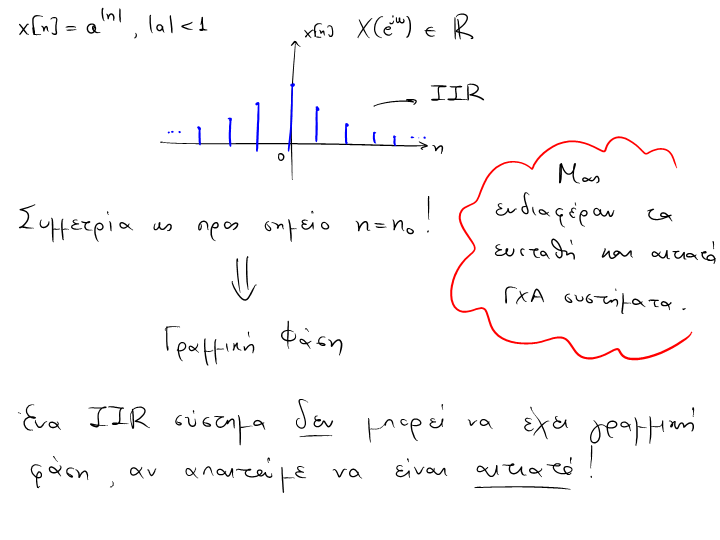 x[n] = a^{|n|}, |a| < 1
x[n] X(e^{jω}) ∈ ℝ
IIR
... ...
0 n
Συμμετρία ως προς σημείο n = n₀!
Γραμμική Φάση
Μας
ενδιαφέραν τα
ευσταθή και αιτιατά
ΓΧΑ συστήματα.
Ένα IIR σύστημα δεν μπορεί να έχει γραμμική
φάση, αν απαιτούμε να είναι αιτιατό!